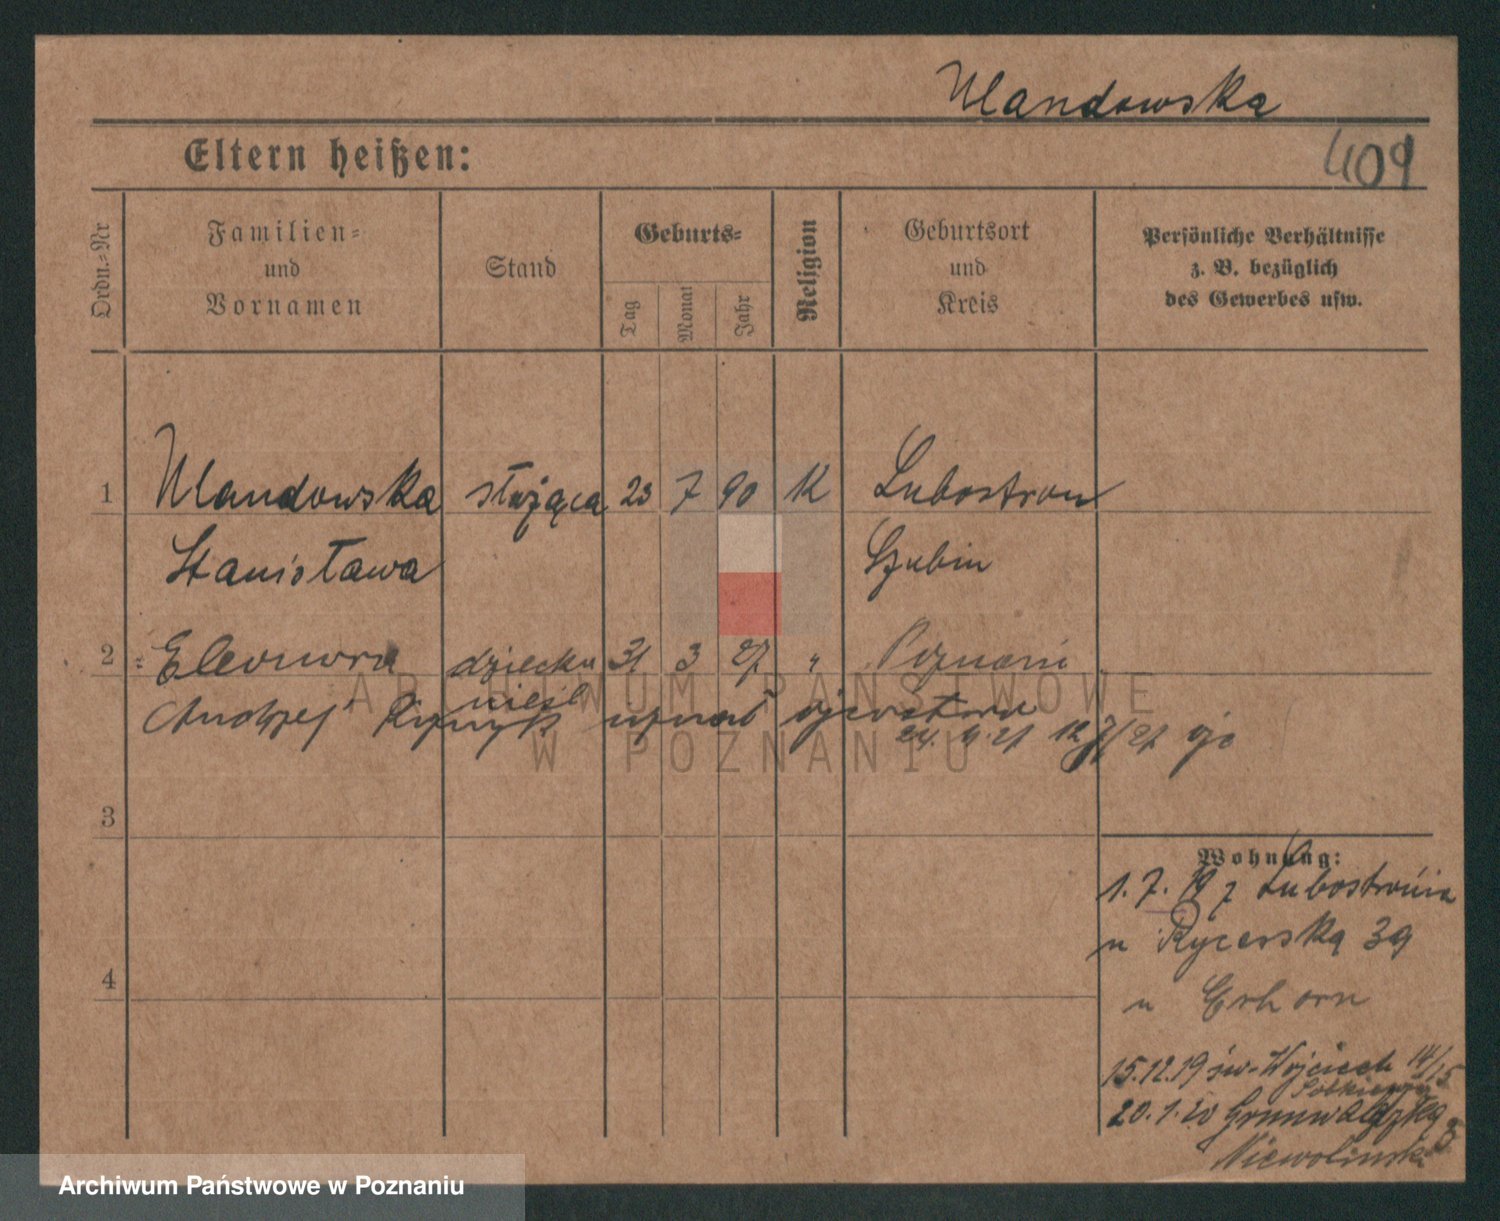 Ulandowska
Eltern heißen:
409
Ordn.-Nr
Familien-
und
Vornamen
Stand
Geburts-
Tag
Monat
Jahr
Religion
Geburtsort
und
Kreis
Persönliche Verhältnisse
z. B. bezüglich
des Gewerbes usw.
1 Ulandowska służąca 23 7 90 K Lubostron
Stanisława Szubin
2 Eleonora dziecko 31 3 27 " Poznań
nieśl
Andrzej uznał ojcostwo
3
4
Wohnung:
1.7.19 z Lubostronia
u Rycerska 39
u Erhorn
15.12.19 św. Wojciech 14/15
20.1.20 Grunwaldzka
Niewolinski
ARCHIWUM PAŃSTWOWE
W POZNANIU
Archiwum Państwowe w Poznaniu